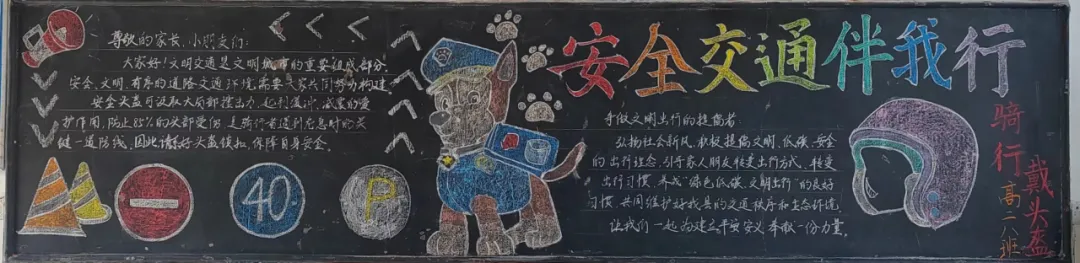 尊敬的家长、小朋友们:
大家好!文明交通是文明城市的重要组成部分
安全、文明、有序的道路交通环境需要大家共同努力构建
安全头盔可吸收大局部撞击力,起到缓冲、减震的爱
护作用,防止85%的头部受伤,是骑行者遇到危急时的关
键一道防线,因此请 好头盔 ,保障自身安全。
40
P
安全交通伴我行
争做文明出行的提倡者
弘扬社会新风,积极提倡文明、低碳、安全
的出行理念,引导家人朋友转变出行方式、转变
出行习惯,养成"绿色低碳、文明出行"的良好
习惯,共同维护好我县的交通秩序和生态环境,
让我们一起为建立平安安义奉献一份力量。
骑行戴头盔
高二八班